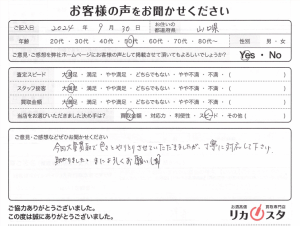 お客様の声をお聞かせください
ご記入日 2024年 9月 30日 お住いの都道府県 山口県
年齢 20代・30代・40代・50代・60代・70代・80代〜 性別 男・女
ご意見・ご感想を弊社ホームページにお客様の声として掲載させて頂いてもよろしいでしょうか? Yes・No
査定スピード 大満足・満足・やや満足・どちらでもない・やや不満・不満・( )
スタッフ接客 大満足・満足・やや満足・どちらでもない・やや不満・不満・( )
買取金額 大満足・満足・やや満足・どちらでもない・やや不満・不満・( )
当店をお選びいただきました決め手は? 買取金額・対応力・利便性・スピード・その他( )
ご意見・ご感想などぜひお聞かせください
今回大量買取で色々とやりとりさせていただきましたが、丁寧に対応して下さり
助かりました。またよろしくお願いします
ご協力ありがとうございました。
この度は誠にありがとうございました。
お酒高価買取専門店
リカスタ